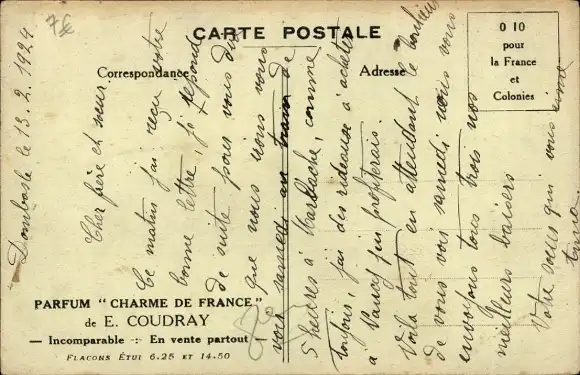 7€
CARTE POSTALE
Correspondance
Adresse
0 10
pour
la France
et
Colonies
Dombasle le 13.2.1924
Cher frère et sœur.
Ce matin j'ai reçu votre
bonne lettre, j'y répond
de suite pour vous dire
que nous irons vous
voir samedi au train de
5 heures à Marbache, comme
toujours, j'ai des rideaux à acheter
à Nancy j'en profiterais.
Voila tout en attendant le bonheur
de vous voir samedi nous vous
envoyons tous trois nos
meilleurs baisers
Votre sœur qui vous aime
PARFUM "CHARME DE FRANCE"
de E. COUDRAY
— Incomparable -:- En vente partout —
FLACONS ÉTUI 6.25 ET 14.50